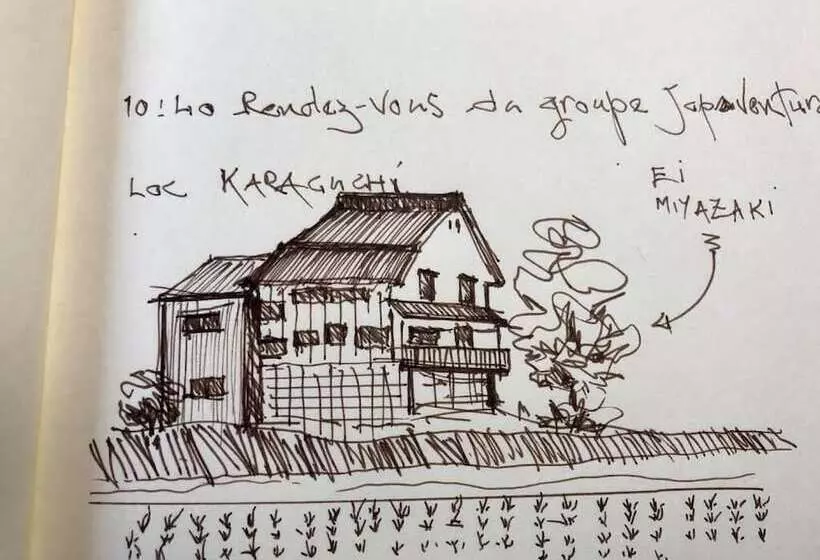 10:Lo Rendez-Vous du groupe Japaventura
Loc KARAGUCHI
Ei
MIYAZAKI